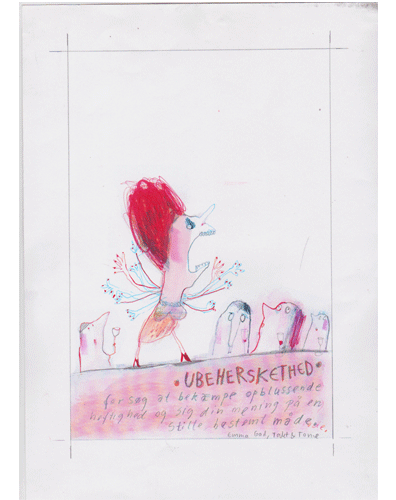 • UBEHERSKETHED •
forsøg at bekæmpe opblussende
heftighed og sig din mening på en
stille bestemt måde
Emma